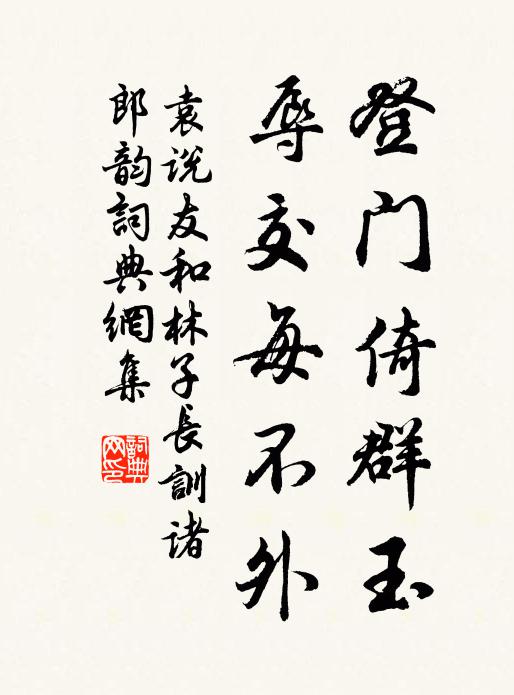 登门倚群玉
辱交每不外
袁说友和林子長訓诸
郎韵詞典網集
詞典
网印